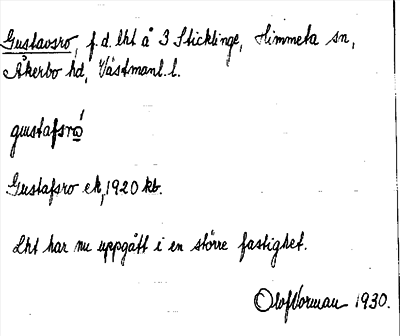 Gustavsro, f.d. lht å 3 Sticklinge, Himmeta sn,
Åkerbo hd, Västmanl. l.
gustafsrò
Gustafsro ek, 1920 kb.
Lht har nu uppgått i en större fastighet.
Olof Norman 1930.